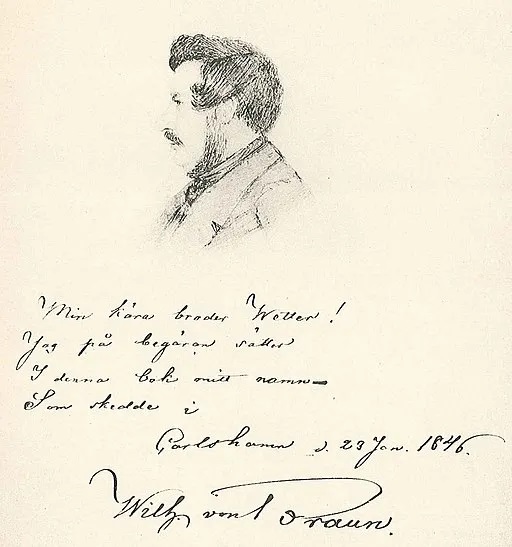 Min kära broder Wetter!
Jag på begäran sätter
I denna bok mitt namn—
Som skedde i
Carlshamn d. 23 Jan. 1846.
Wilh. von Braun.